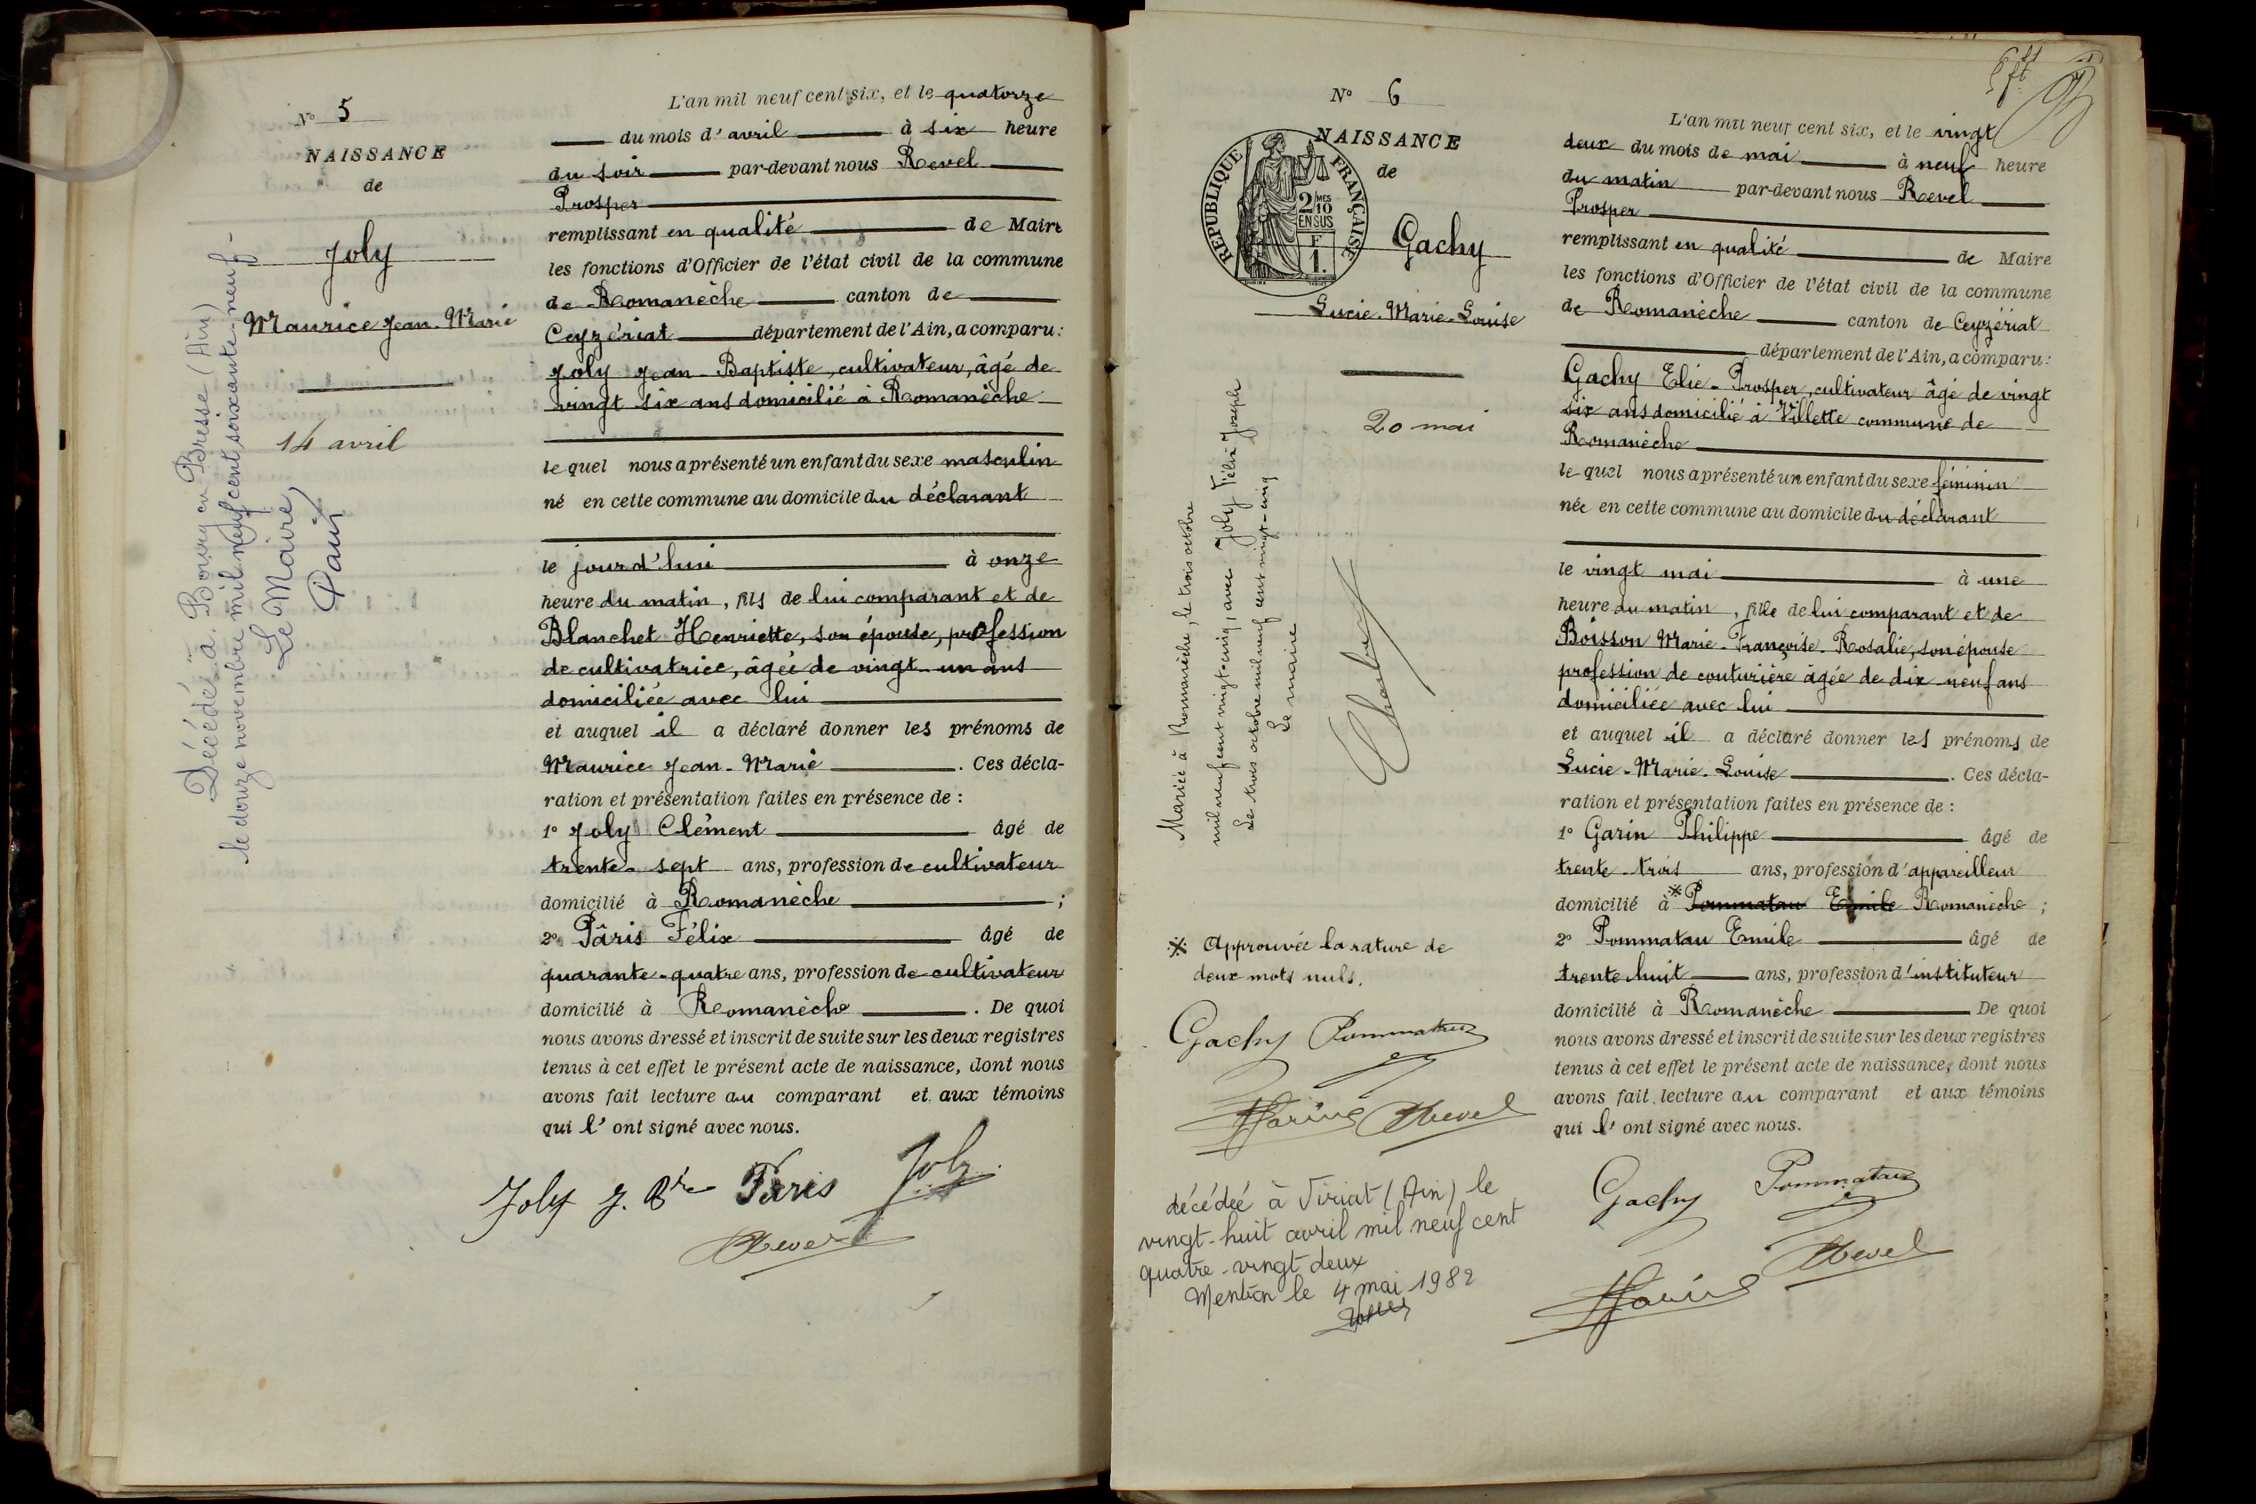 N° 5
NAISSANCE
de
Joly
Maurice Jean-Marie
14 avril
Décédé à Bourg en Bresse (Ain)
le douze novembre mil neuf cent soixante-neuf-
Le Maire,
L'an mil neuf cent six, et le quatorze
du mois d'avril à six heure
du soir par-devant nous Revel
Prosper
remplissant en qualité de Maire
les fonctions d'Officier de l'état civil de la commune
de Romanèche canton de
Ceyzériat département de l'Ain, a comparu:
Joly Jean-Baptiste, cultivateur, âgé de
vingt six ans domicilié à Romanèche
le quel nous a présenté un enfant du sexe masculin
né en cette commune au domicile du déclarant
le jourd'hui à onze
heure du matin, fils de lui comparant et de
Blanchet Henriette, son épouse, profession
de cultivatrice, âgée de vingt un ans
domiciliée avec lui
et auquel il a déclaré donner les prénoms de
Maurice Jean-Marie. Ces décla-
ration et présentation faites en présence de :
1° Joly Clément âgé de
trente-sept ans, profession de cultivateur
domicilié à Romanèche ;
2° Pâris Félix âgé de
quarante-quatre ans, profession de cultivateur
domicilié à Romanèche. De quoi
nous avons dressé et inscrit de suite sur les deux registres
tenus à cet effet le présent acte de naissance, dont nous
avons fait lecture au comparant et aux témoins
qui l'ont signé avec nous.
Joly J. Bte Paris Joly
Revel
N° 6
NAISSANCE
de
REPUBLIQUE FRANÇAISE
2 MES
10
EN SUS
F
1.
Gachy
Lucie-Marie-Louise
20 mai
Mariée à Romanèche, le trois octobre
mil neuf cent vingt-cinq, avec Joly Félix Joseph
Le trois octobre mil neuf cent vingt-cinq
Le maire
※ Approuvée la rature de
deux mots nuls.
Gachy Pommatau
Garin Revel
décédée à Viriat (Ain) le
vingt-huit avril mil neuf cent
quatre-vingt deux
Mention le 4 mai 1982
L'an mil neuf cent six, et le vingt
deux du mois de mai à neuf heure
du matin par-devant nous Revel
Prosper
remplissant en qualité de Maire
les fonctions d'Officier de l'état civil de la commune
de Romanèche canton de Ceyzériat
département de l'Ain, a comparu:
Gachy Elie-Prosper, cultivateur âgé de vingt
six ans domicilié à Villette commune de
Romanèche
le quel nous a présenté un enfant du sexe féminin
née en cette commune au domicile du déclarant
le vingt mai à une
heure du matin, fille de lui comparant et de
Boisson Marie-Françoise-Rosalie, son épouse
profession de couturière âgée de dix-neuf ans
domiciliée avec lui
et auquel il a déclaré donner les prénoms de
Lucie-Marie-Louise. Ces décla-
ration et présentation faites en présence de :
1° Garin Philippe âgé de
trente-trois ans, profession d'appareilleur
domicilié à ※ Pommatau Emile Romanèche ;
2° Pommatau Emile âgé de
trente huit ans, profession d'instituteur
domicilié à Romanèche De quoi
nous avons dressé et inscrit de suite sur les deux registres
tenus à cet effet le présent acte de naissance, dont nous
avons fait lecture au comparant et aux témoins
qui l'ont signé avec nous.
Gachy Pommatau
Revel
Garin